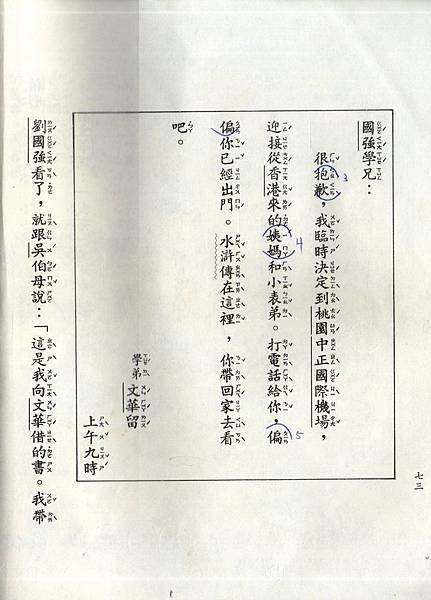 七三
國強學兄：
很抱歉，我臨時決定到桃園中正國際機場，
3
迎接從香港來的姨媽和小表弟。打電話給你，偏
4
5
偏你已經出門。水滸傳在這裡，你帶回家去看
吧。
學弟
文華留
上午九時
劉國強看了，就跟吳伯母說：「這是我向文華借的書。我帶